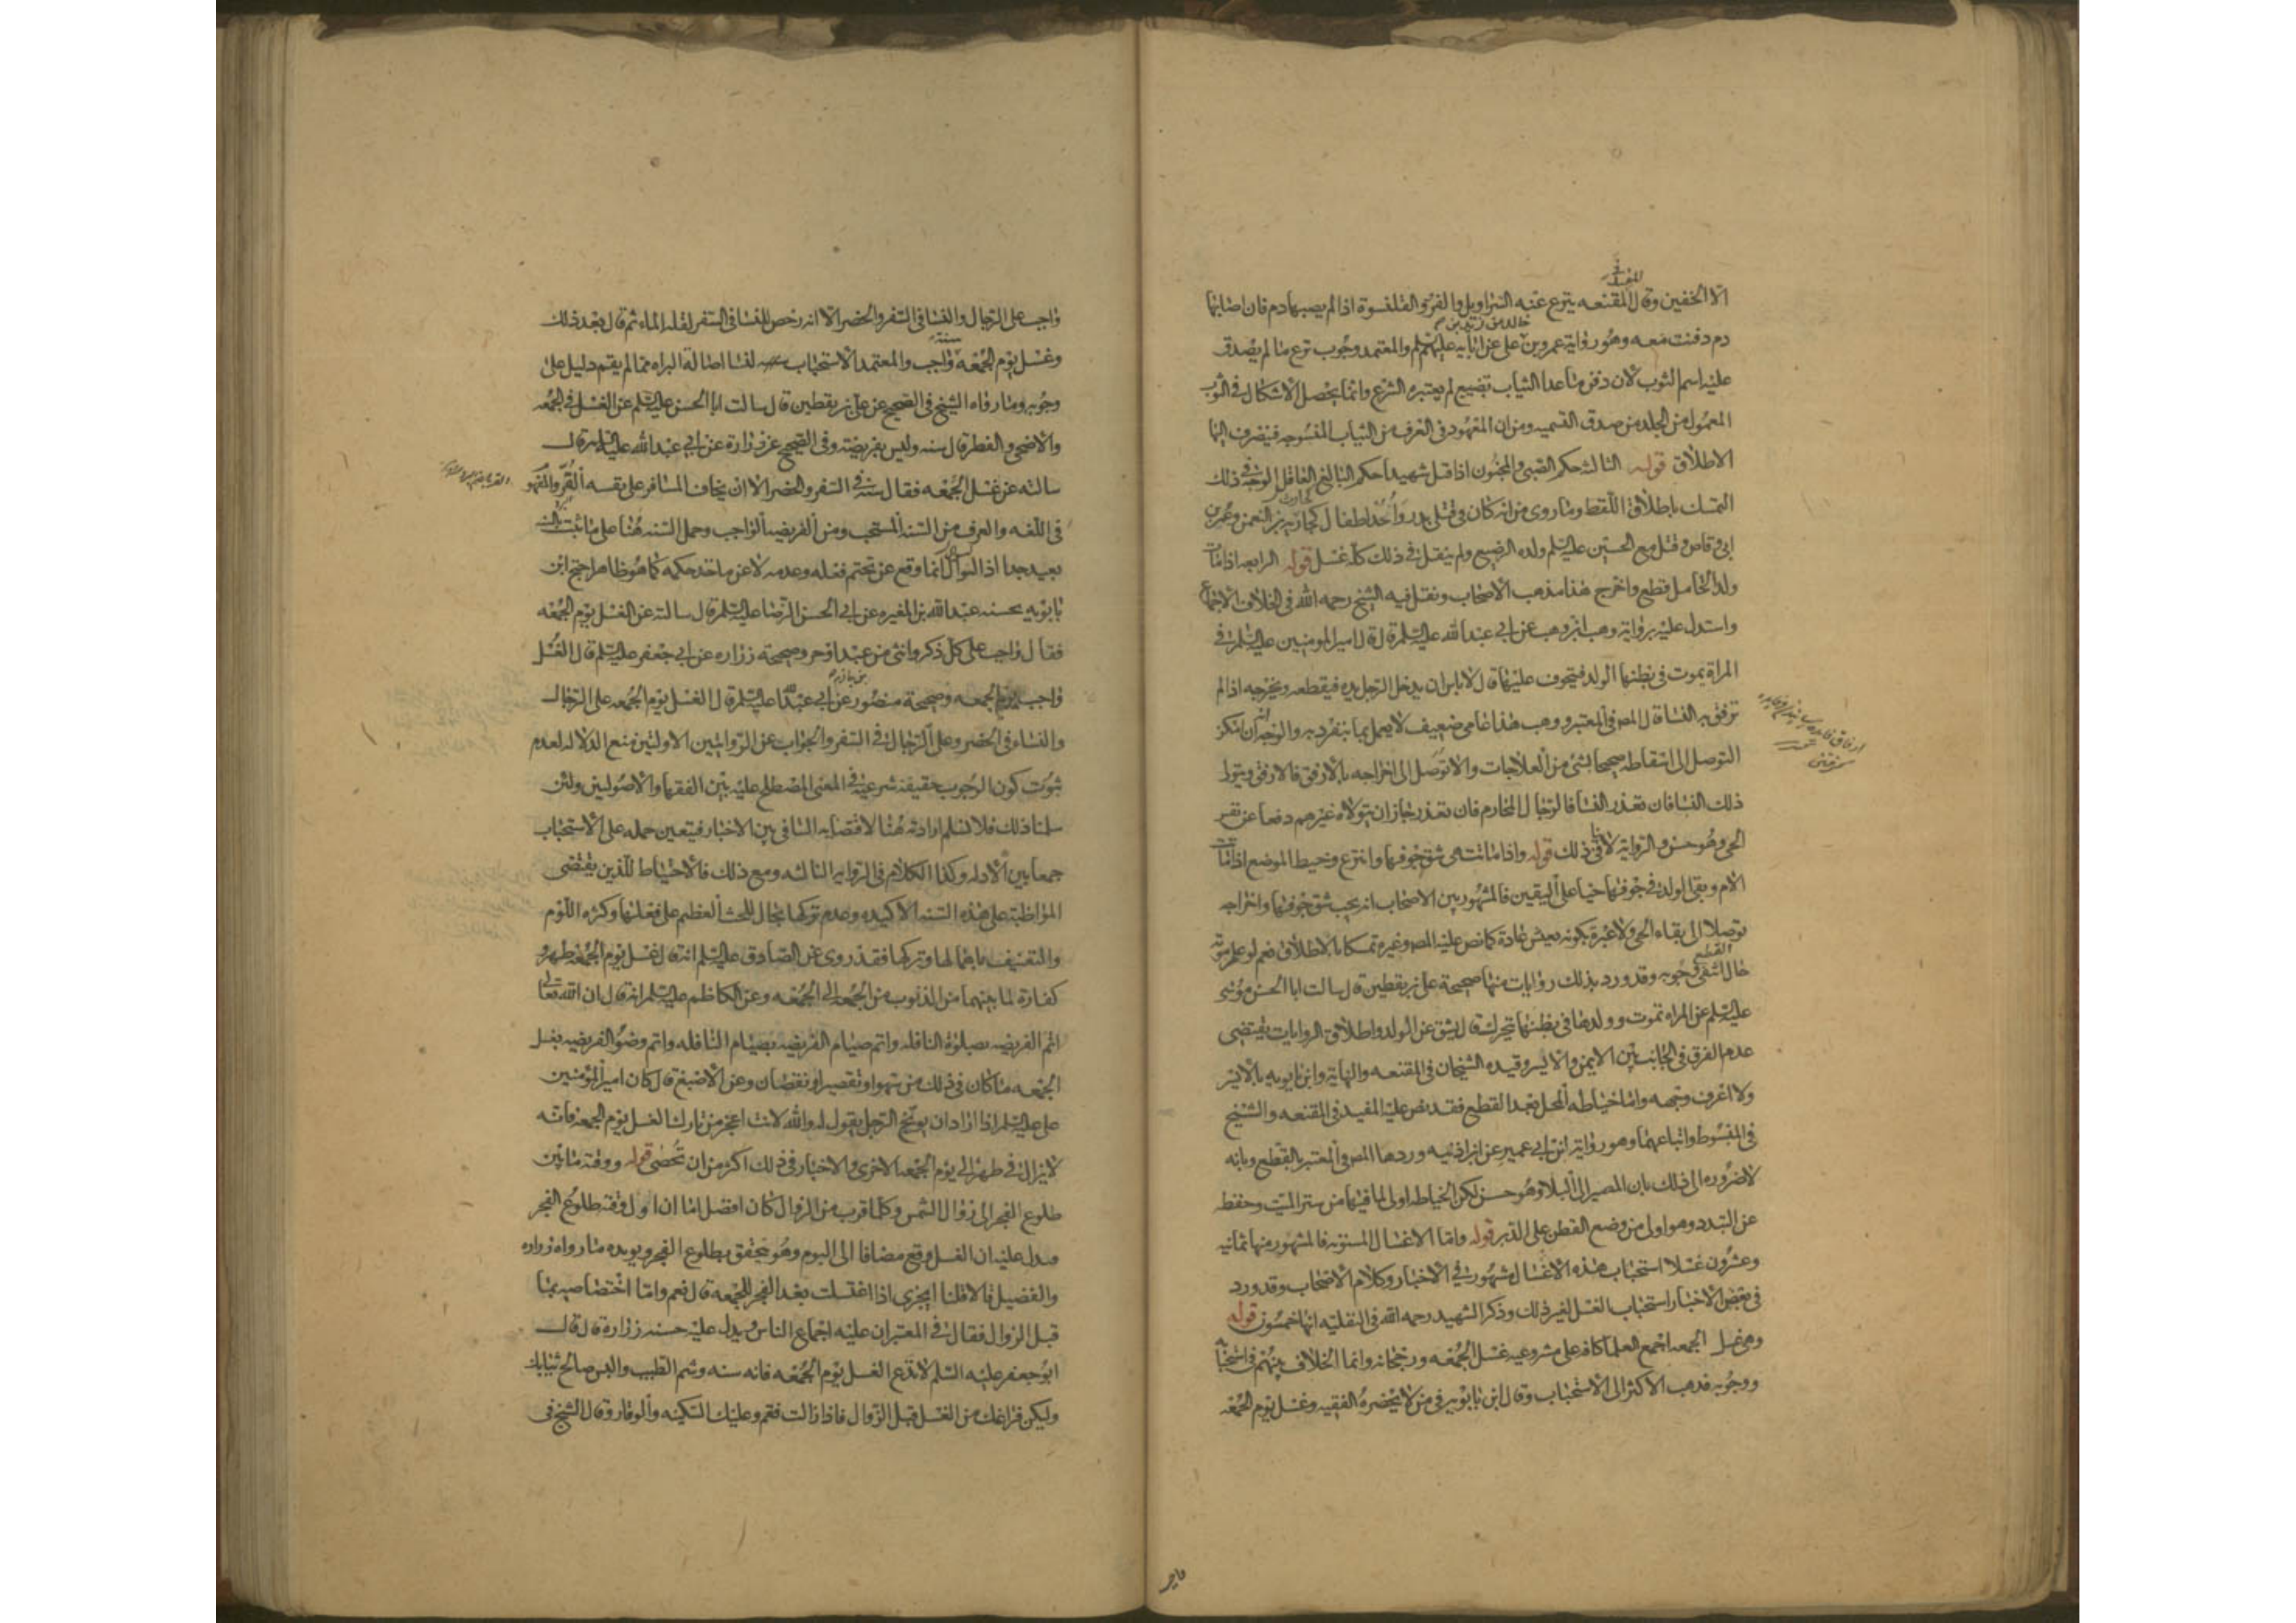 المفيد في
الا الخفين وقال المقنعه ينزع عنه السراويل والفرو والقلنسوة اذا لم يصبها دم فان اصابها
خالد عن زيد بن
دم دفنت معه وهو رواية عمرو بن على عن ابايه عليهم السلم والمعتمد وجوب نزع ما لم يصدق
عليه اسم الثوب لان دفن ما عدا الثياب تضييع لم يعتبره الشرع وانما يحصل الاشكال في الثوب
المعمول من الجلد من صدق التسميه ومن ان المعهود في العرف من الثياب المنسوجه فينصرف اليها
الاطلاق قوله الثالث حكم الصبى والمجنون اذا قتل شهيدا حكم البالغ العاقل الوجه في ذلك
التمسك باطلاق اللفظ وما روى من انه كان فى قتلى بدر واحد اطفال كحارثه بن النعمن وعمر بن
ابى وقاص وقتل مع الحسين عليه السلم ولده الرضيع ولم ينقل في ذلك كله غسل قوله الرابع اذا مات
ولد الحامل قطع واخرج هذا مذهب الاصحاب ونقل فيه الشيخ رحمه الله فى الخلاف الاجماع
واستدل عليه برواية وهب ابن وهب عن ابي عبد الله عليه السلم قال قال امير المومنين عليه السلم في
المراة يموت في بطنها الولد فيتخوف عليها قال لا باس ان يدخل الرجل يده فيقطعه ويخرجه اذا لم
ترفق به النسا قال المص فى المعتبر ووهب هذا عامى ضعيف لا يعمل بما ينفرد به والوجه انه ان امكن
التوصل الى اسقاطه صحيحا بشئ من العلاجات والا توصل الى اخراجه بالارفق فالارفق ويتولى
ذلك النسا فان تعذر النسا فالرجال المحارم فان تعذر جاز ان يتولاه غيرهم دفعا عن نفس
الحى وهو حسن والرواية لا تنافى ذلك قوله واذا ماتت هى شق جوفها وانتزع وخيط الموضع اذا ماتت
الام وبقى الولد في جوفها حيا على اليقين فالمشهور بين الاصحاب انه يجب شق جوفها واخراجه
توصلا الى بقاء الحى ولا عبرة بكونه يعيش عادة كما نص عليه المص وغيره تمسكا بالاطلاق نعم لو علم موته
حال الشق القطع وجوبه وقد ورد بذلك روايات منها صحيحة على بن يقطين قال سالت ابا الحسن موسى
عليه السلم عن المراه تموت وولدها فى بطنها يتحرك قال يشق عن الولد واطلاق الروايات يقتضى
عدم الفرق فى الجانب بين الايمن والايسر وقيده الشيخان فى المقنعه والنهاية وابن بابويه بالايسر
ولا اعرف وجهه واما خياطه المحل بعد القطع فقد نص عليه المفيد فى المقنعه والشيخ
فى المبسوط واتباعهما وهو رواية ابن ابي عمير عن ابن اذنيه وردها المص فى المعتبر بالقطع وبانه
لا ضروره الى ذلك بان المصير الى البلا وهو حسن لكن الخياطه اولى لما فيها من ستر الميت وحفظه
عن التبدد وهو اولى من وضع القطن على الدبر قوله واما الاغسال المسنونه فالمشهور منها ثمانيه
وعشرون غسلا استحباب هذه الاغسال مشهور في الاخبار وكلام الاصحاب وقد ورد
فى بعض الاخبار استحباب الغسل لغير ذلك وذكر الشهيد رحمه الله فى النفليه انها خمسون قوله
وهى غسل الجمعه اجمع العلما كافه على مشروعيه غسل الجمعه ورجحانه وانما الخلاف بينهم فى استحبابه
ووجوبه فذهب الاكثر الى الاستحباب وقال ابن بابويه فى من لا يحضره الفقيه وغسل يوم الجمعه
واجب على الرجال والنسا فى السفر والحضر الا انه رخص للنسا فى السفر لقله الماء ثم قال بعد ذلك
وغسل يوم الجمعه سنة واجب والمعتمد الاستحباب لنا اصالة البراه مما لم يقم دليل على
وجوبه وما رواه الشيخ فى الصحيح عن على بن يقطين قال سالت ابا الحسن عليه السلم عن الغسل في الجمعه
والاضحى والفطر قال سنه وليس بفريضته وفى الصحيح عن زرارة عن ابي عبد الله عليه السلم قال
سالته عن غسل الجمعه فقال سنه في السفر والحضر الا ان يخاف المسافر على نفسه القر والمفهوم
فى اللغه والعرف من السنه المستحب ومن الفريضه الواجب وحمل السنه هنا على ما ثبت بالسنه
بعيد جدا اذ السوال انما وقع عن تحتم فعله وعدمه لا عن ماخذ حكمه كما هو ظاهر احتج ابن
بابويه بحسنه عبد الله بن المغيره عن ابي الحسن الرضا عليه السلم قال سالته عن الغسل يوم الجمعه
فقال واجب على كل ذكر وانثى من عبد او حر وصحيحة زراره عن ابي جعفر عليه السلم قال الغسل
واجب يوم الجمعه وصحيحة منصور بن حازم عن ابي عبد الله عليه السلم قال الغسل يوم الجمعه على الرجال
والنساء فى الحضر وعلى الرجال في السفر والجواب عن الروايتين الاولتين بمنع الدلاله لعدم
ثبوت كون الوجوب حقيقة شرعيه في المعنى المصطلح عليه بين الفقها والاصوليين ولئن
سلمنا ذلك فلا نسلم ارادته هنا لاقتضايه التنافى بين الاخبار فيتعين حمله على الاستحباب
جمعا بين الادله وكذا الكلام فى الرواية الثالثه ومع ذلك فالاحتياط للدين يقتضى
المواظبة على هذه السنه الاكيده وعدم تركها بحال للحث العظيم على فعلها وكثره اللوم
والتعنيف باهمالها وتركها فقد روى عن الصادق عليه السلم انه قال غسل يوم الجمعه طهور
كفارة لما بينهما من الذنوب من الجمعه الى الجمعه وعن الكاظم عليه السلم انه قال ان الله تعالى
اتم الفريضه بصلوة النافله واتم صيام الفريضه بصيام النافله واتم وضو الفريضه بغسل
الجمعه ما كان فى ذلك من سهو او تقصير او نقصان وعن الاصبغ قال كان امير المؤمنين
على عليه السلم اذا اراد ان يوبخ الرجل يقول له والله لانت اعجز من تارك الغسل يوم الجمعه فانه
لا يزال في طهر الى يوم الجمعه الاخرى والاخبار فى ذلك اكثر من ان تحصى قوله ووقته ما بين
طلوع الفجر الى زوال الشمس وكلما قرب من الزوال كان افضل اما ان اول وقته طلوع الفجر
فيدل عليه ان الغسل وقع مضافا الى اليوم وهو يتحقق بطلوع الفجر ويويده ما رواه زراره
والفضيل قالا قلنا ايجزى اذا اغتسلت بعد الفجر للجمعه قال نعم واما اختصاصه بما
قبل الزوال فقال في المعتبر ان عليه اجماع الناس ويدل عليه حسنه زرارة قال قال
ابو جعفر عليه السلم لا تدع الغسل يوم الجمعه فانه سنه وشم الطيب والبس صالح ثيابك
وليكن فراغك من الغسل قبل الزوال فاذا زالت فقم وعليك السكينه والوقار وقال الشيخ فى